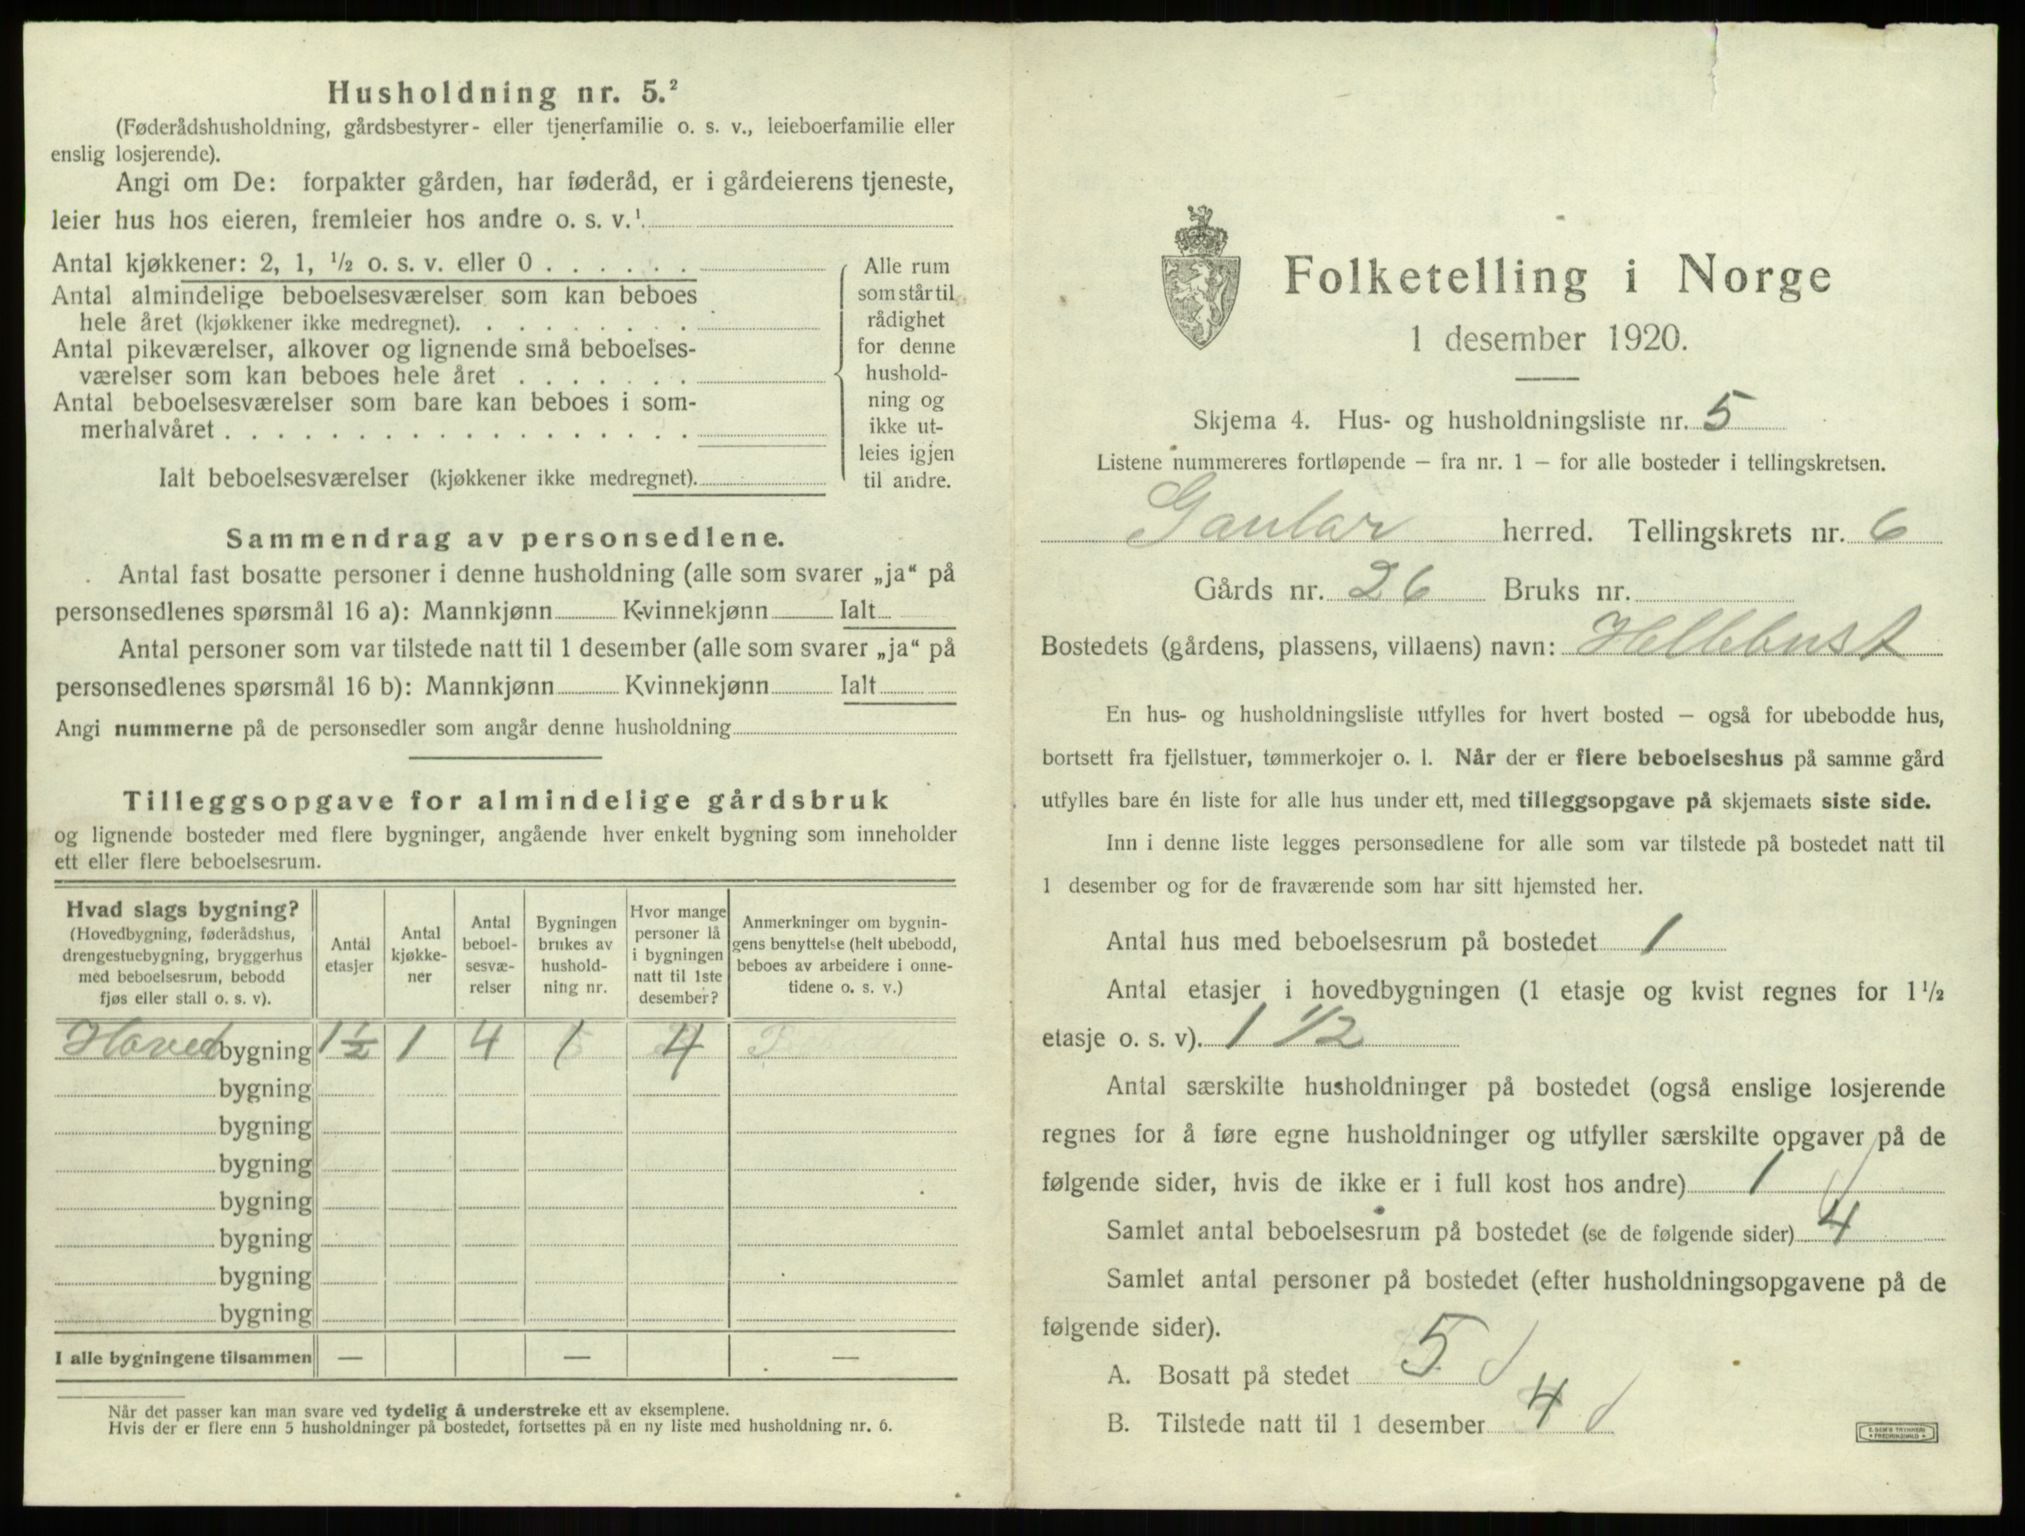 Husholdning nr. 5.²
(Føderådshusholdning, gårdsbestyrer- eller tjenerfamilie o. s. v., leieboerfamilie eller
enslig losjerende).
Angi om De: forpakter gården, har føderåd, er i gårdeierens tjeneste,
leier hus hos eieren, fremleier hos andre o. s. v.¹
Antal kjøkkener: 2, 1, ½ o. s. v. eller 0 . . . . . .
Antal almindelige beboelsesværelser som kan beboes
hele året (kjøkkener ikke medregnet). . . . . . . . .
Antal pikeværelser, alkover og lignende små beboelses-
værelser som kan beboes hele året . . . . . . .
Antal beboelsesværelser som bare kan beboes i som-
merhalvåret . . . . . . . . . . . . . . . . . .
Ialt beboelsesværelser (kjøkkener ikke medregnet).
Alle rum
som står til
rådighet
for denne
hushold-
ning og
ikke ut-
leies igjen
til andre.
Sammendrag av personsedlene.
Antal fast bosatte personer i denne husholdning (alle som svarer „ja“ på
personsedlenes spørsmål 16 a): Mannkjønn Kvinnekjønn Ialt
Antal personer som var tilstede natt til 1 desember (alle som svarer „ja“ på
personsedlenes spørsmål 16 b): Mannkjønn Kvinnekjønn Ialt
Angi nummerne på de personsedler som angår denne husholdning
Tilleggsopgave for almindelige gårdsbruk
og lignende bosteder med flere bygninger, angående hver enkelt bygning som inneholder
ett eller flere beboelsesrum.
Hvad slags bygning?
(Hovedbygning, føderådshus,
drengestuebygning, bryggerhus
med beboelsesrum, bebodd
fjøs eller stall o. s. v).
Antal
etasjer
Antal
kjøkke-
ner
Antal
beboel-
sesvæ-
relser
Bygningen
brukes av
hushold-
ning nr.
Hvor mange
personer lå
i bygningen
natt til 1ste
desember?
Anmerkninger om bygnin-
gens benyttelse (helt ubebodd,
beboes av arbeidere i onne-
tidene o. s. v.)
Hovedbygning 1½ 1 4 1 4
bygning
bygning
bygning
bygning
bygning
bygning
bygning
I alle bygningene tilsammen — — —
Når det passer kan man svare ved tydelig å understreke ett av eksemplene.
Hvis der er flere enn 5 husholdninger på bostedet, fortsettes på en ny liste med husholdning nr. 6.
Folketelling i Norge
1 desember 1920.
Skjema 4. Hus- og husholdningsliste nr. 5
Listene nummereres fortløpende – fra nr. 1 – for alle bosteder i tellingskretsen.
Gaular herred. Tellingskrets nr. 6
Gårds nr. 26 Bruks nr.
Bostedets (gårdens, plassens, villaens) navn: Hellebust
En hus- og husholdningsliste utfylles for hvert bosted – også for ubebodde hus,
bortsett fra fjellstuer, tømmerkojer o. l. Når der er flere beboelseshus på samme gård
utfylles bare én liste for alle hus under ett, med tilleggsopgave på skjemaets siste side.
Inn i denne liste legges personsedlene for alle som var tilstede på bostedet natt til
1 desember og for de fraværende som har sitt hjemsted her.
Antal hus med beboelsesrum på bostedet 1
Antal etasjer i hovedbygningen (1 etasje og kvist regnes for 1½
etasje o. s. v). 1 1/2
Antal særskilte husholdninger på bostedet (også enslige losjerende
regnes for å føre egne husholdninger og utfyller særskilte opgaver på de
følgende sider, hvis de ikke er i full kost hos andre) 1
Samlet antal beboelsesrum på bostedet (se de følgende sider) 4
Samlet antal personer på bostedet (efter husholdningsopgavene på de
følgende sider).
A. Bosatt på stedet 5
B. Tilstede natt til 1 desember 4